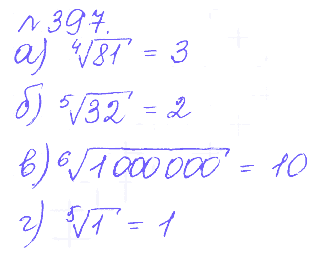 №397.
а) ⁴√81 = 3
б) ⁵√32 = 2
в) ⁶√1000000 = 10
г) ⁵√1 = 1